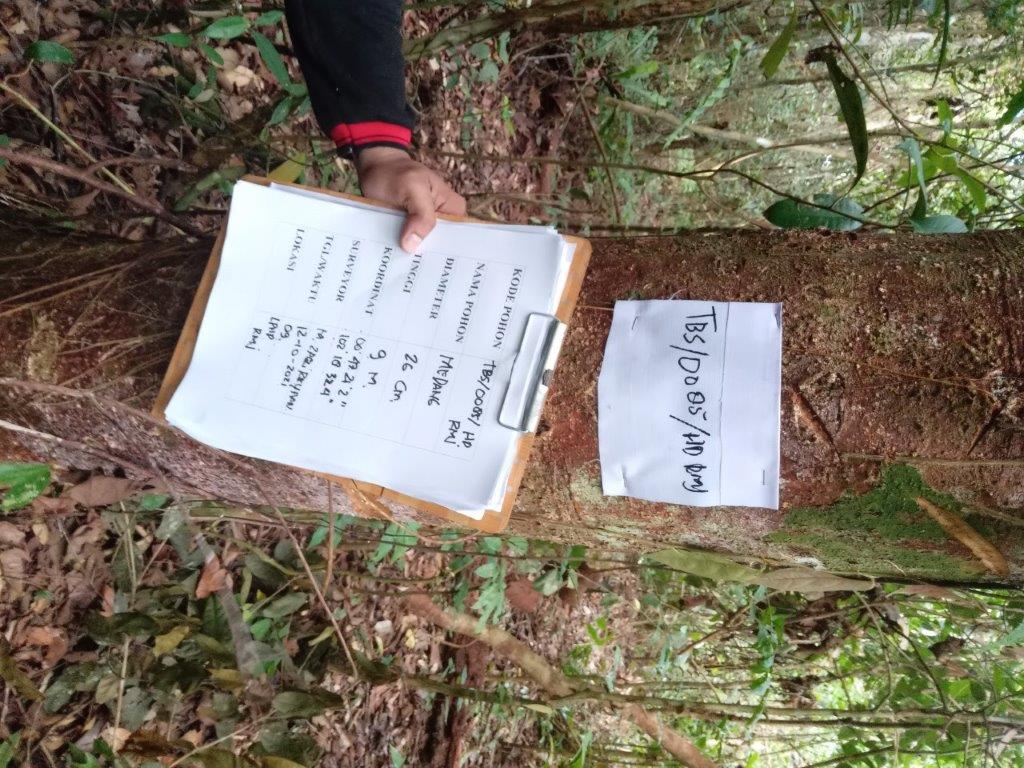 TBS/0085/HD RMJ
KODE POHON TBS/0085/ HD
RMJ
NAMA POHON MEDANG
DIAMETER 26 Cm.
TINGGI 9 M.
KOORDINAT 00°43'21'2"
102°18'32.4"
SURVEYOR
TGL/WAKTU 12-10-2021
09.
LOKASI LPHD
RMJ